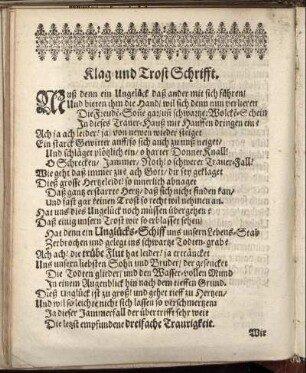 Klag-und Trost Schrifft.
Muß denn ein Ungelück daß ander mit sich führen/
Und bieten ihm die Hand/ wil sich denn nun verlieren
Die Freuden Soñe gar/uñ schwartze Wolckẽ Schein
In dieses Trauer-Hauß mit Hauffen dringen ein?
Ach ja ach leider/ ja/ von neuen wieder steiget
Ein starck Gewitter auff/so sich auch zu unß neiget/
Und schläget plötzlich ein/ o harter Donner Knall!
O Schrecken/ Jammer/ Noth/ o schwerer Trauer-Fall/
Wie geht daß immer zu? ach Gott/ dir sey geklaget
Dieß grosse Hertzeleid/ so innerlich abnaget
Daß gantz erstarrte Hertz/ daß sich nicht finden kan/
Und fast gar keinen Trost so recht wil nehmen an.
Hat uns dieß Ungelück noch müssen übergehen?
Daß einig unsern Trost wir so erblasset sehen/
Hat denn ein Unglücks-Schiff uns unsern Lebens-Stab
Zerbrochen und gelegt ins schwartze Todten-grab?
Ach ach/ die trübe Flut hat leider/ ja ertráncket
Uns unsern liebsten Sohn und Bruder/ der gesencket
Die Todten glieder/ und den Wasser-vollen Mund
In einem Augenblick hin nach dem tieffen Grund.
Dieß Unglück ist zu groß/ und gehet tieff zu Hertzen/
Und wil so leichte nicht sich lassen so verschmertzen/
Ja dieser Jammerfall der übertrifft sehr weit
Die letzt empfundene dreifache Traurigkeit.
Wir